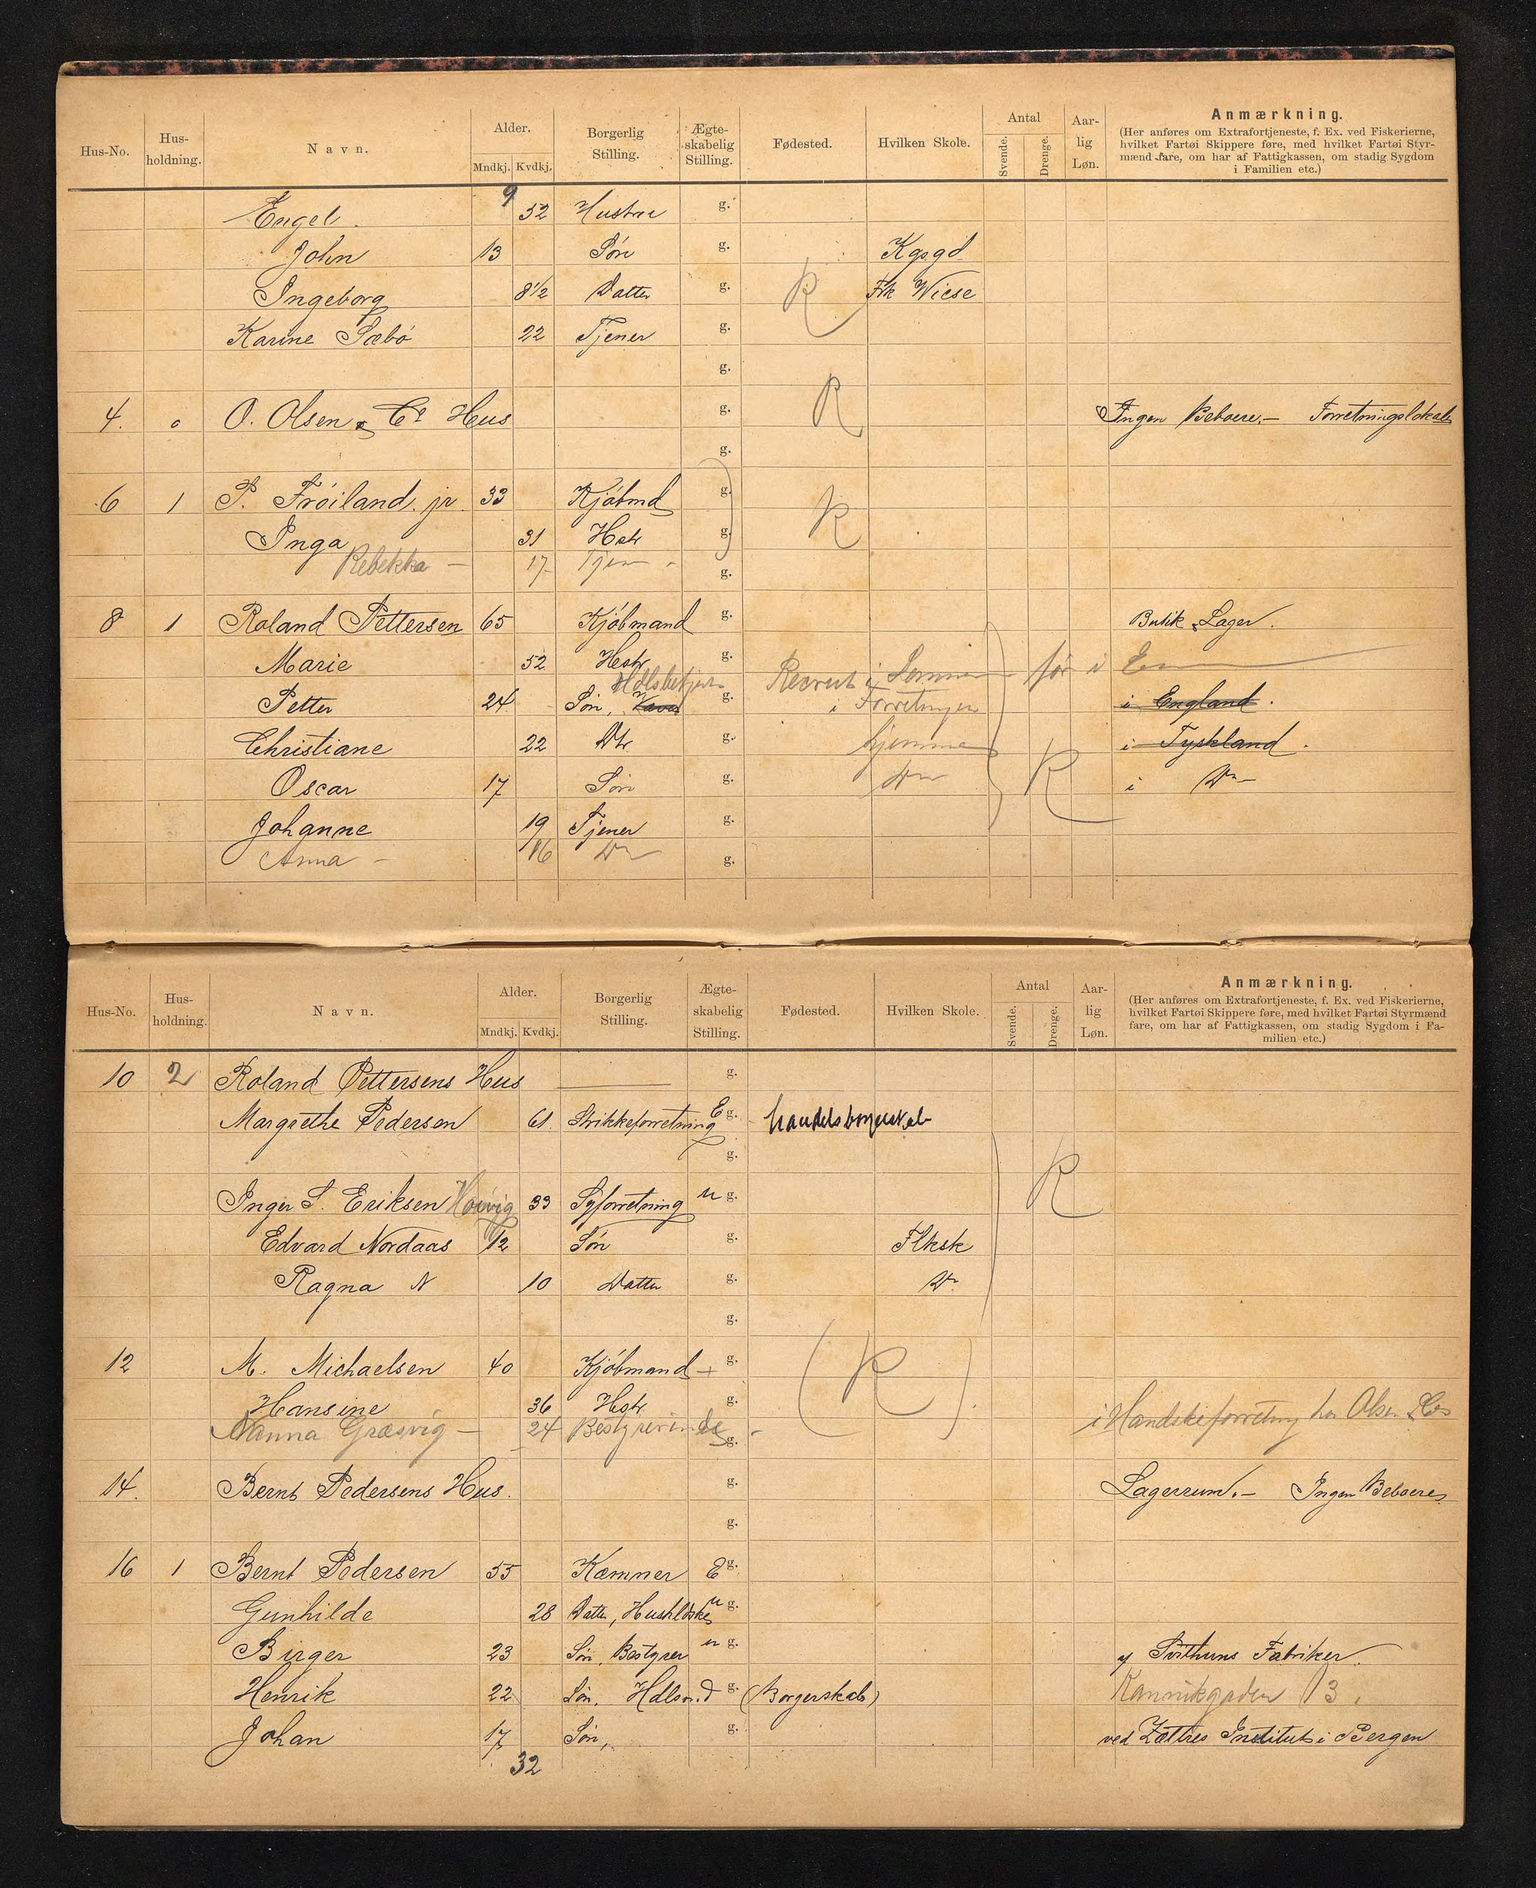 Hus-No. Hus-holdning. Navn. Alder. Mndkj. Kvdkj. Borgerlig Stilling. Ægte-skabelig Stilling. Fødested. Hvilken Skole. Antal Svende. Drenge. Aar-lig Løn. Anmærkning.
(Her anføres om Extrafortjeneste, f. Ex. ved Fiskerierne,
hvilket Fartøi Skippere føre, med hvilket Fartøi Styr-
mænd fare, om har af Fattigkassen, om stadig Sygdom
i Familien etc.)
9
Engel 52 Hustru g.
John 13 Søn g. Kgsgd
Ingeborg 8½ Datter g. R Frk Wiese
Karine Sæbø 22 Tjener g.
g.
4. 0 O. Olsen & Co Hus g. R Ingen Beboere.— Forretningslokale
g.
6 1 P. Frøiland jr. 33 Kjøbmd g. R
Inga 31 Hstr g.
Rebekka — 17 Tjen g.
8 1 Roland Pettersen 65 Kjøbmand g. Butik & Lager.
Marie 52 Hstr g.
Petter 24 Søn, g. Recrut i Sommer før i E i Forretningen i England.
Christiane 22 Dtr g. hjemme i Tyskland.
Oscar 17 Søn g. Do R i Do
Johanne 19 Tjener g.
Anna — 16 Do g.
Hus-No. Hus-holdning. Navn. Alder. Mndkj. Kvdkj. Borgerlig Stilling. Ægte-skabelig Stilling. Fødested. Hvilken Skole. Antal Svende. Drenge. Aar-lig Løn. Anmærkning.
(Her anføres om Extrafortjeneste, f. Ex. ved Fiskerierne,
hvilket Fartøi Skippere føre, med hvilket Fartøi Styrmænd
fare, om har af Fattigkassen, om stadig Sygdom i Fa-
milien etc.)
10 2 Roland Pettersens Hus g.
Margrethe Pedersen 61 Strikkeforretning E g. handelsborgerskab
g. R
Inger S. Eriksen 33 Syforretning u g.
Edvard Nordaas 12 Søn g. Flksk
Ragna N 10 Datter g. Do
g.
12 M. Michaelsen 40 Kjøbmand g. (R)
Hansine 36 Hstr g.
Nanna Græsvig — 24 Bestyrerinde g. i Handskeforretning hos Olsen & Co
14. Bernt Pedersens Hus. g. Lagerrum.— Ingen Beboere
g.
16 1 Bernt Pedersen 55 Kæmner E g.
Gunhilde 28 Datter, Hushldske u g.
Birger 23 Søn, Bestyrer u g. Svithuns Fabriker.
Henrik 22 Søn, Hdlsmd g. (Borgerskab) Kannikgaden 13.
Johan 17 Søn, g. ved Zættres Institut i Bergen
32